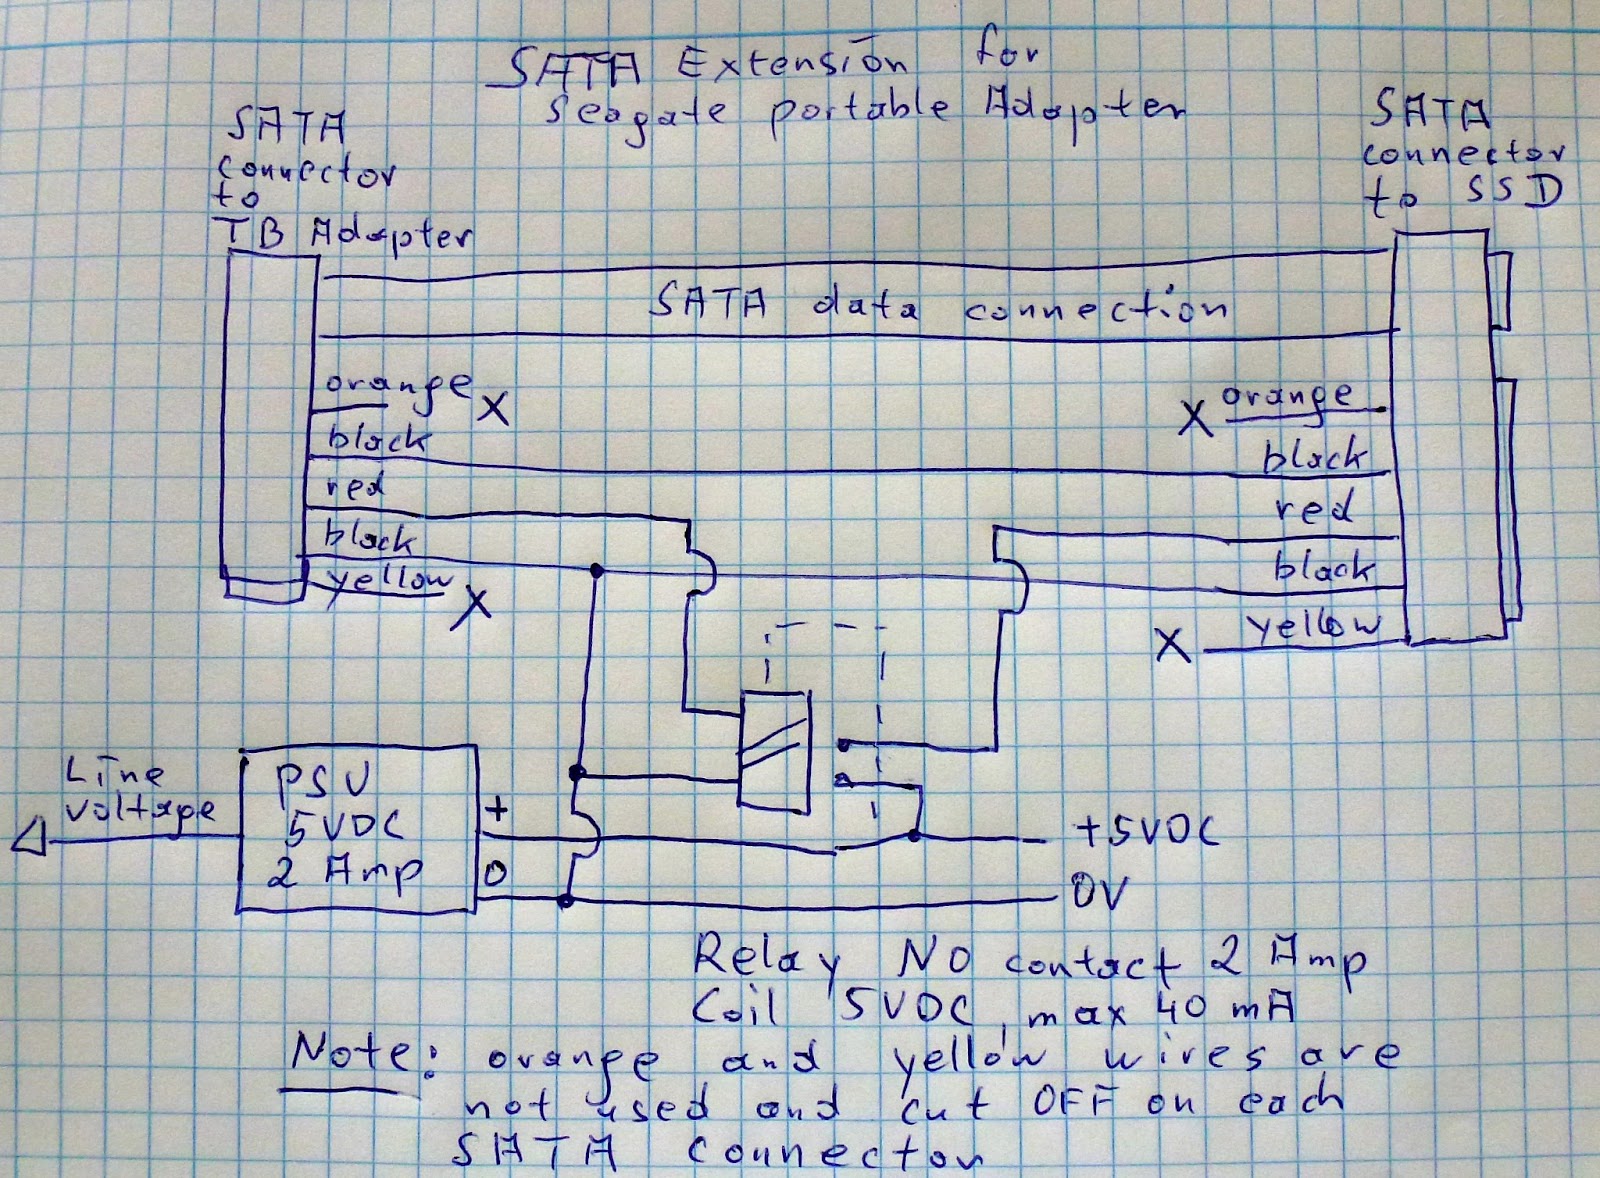 SATA Extension for
Seagate portable Adapter
SATA
connector
to
TB Adapter
SATA
connector
to SSD
SATA data connection
orange X
black
red
black
yellow X
X orange
black
red
black
X yellow
Line
voltage
PSU
5VDC
2 Amp
+
0
+5VDC
0V
Relay NO contact 2 Amp
Coil 5VDC, max 40 mA
Note: orange and yellow wires are
not used and cut OFF on each
SATA connector